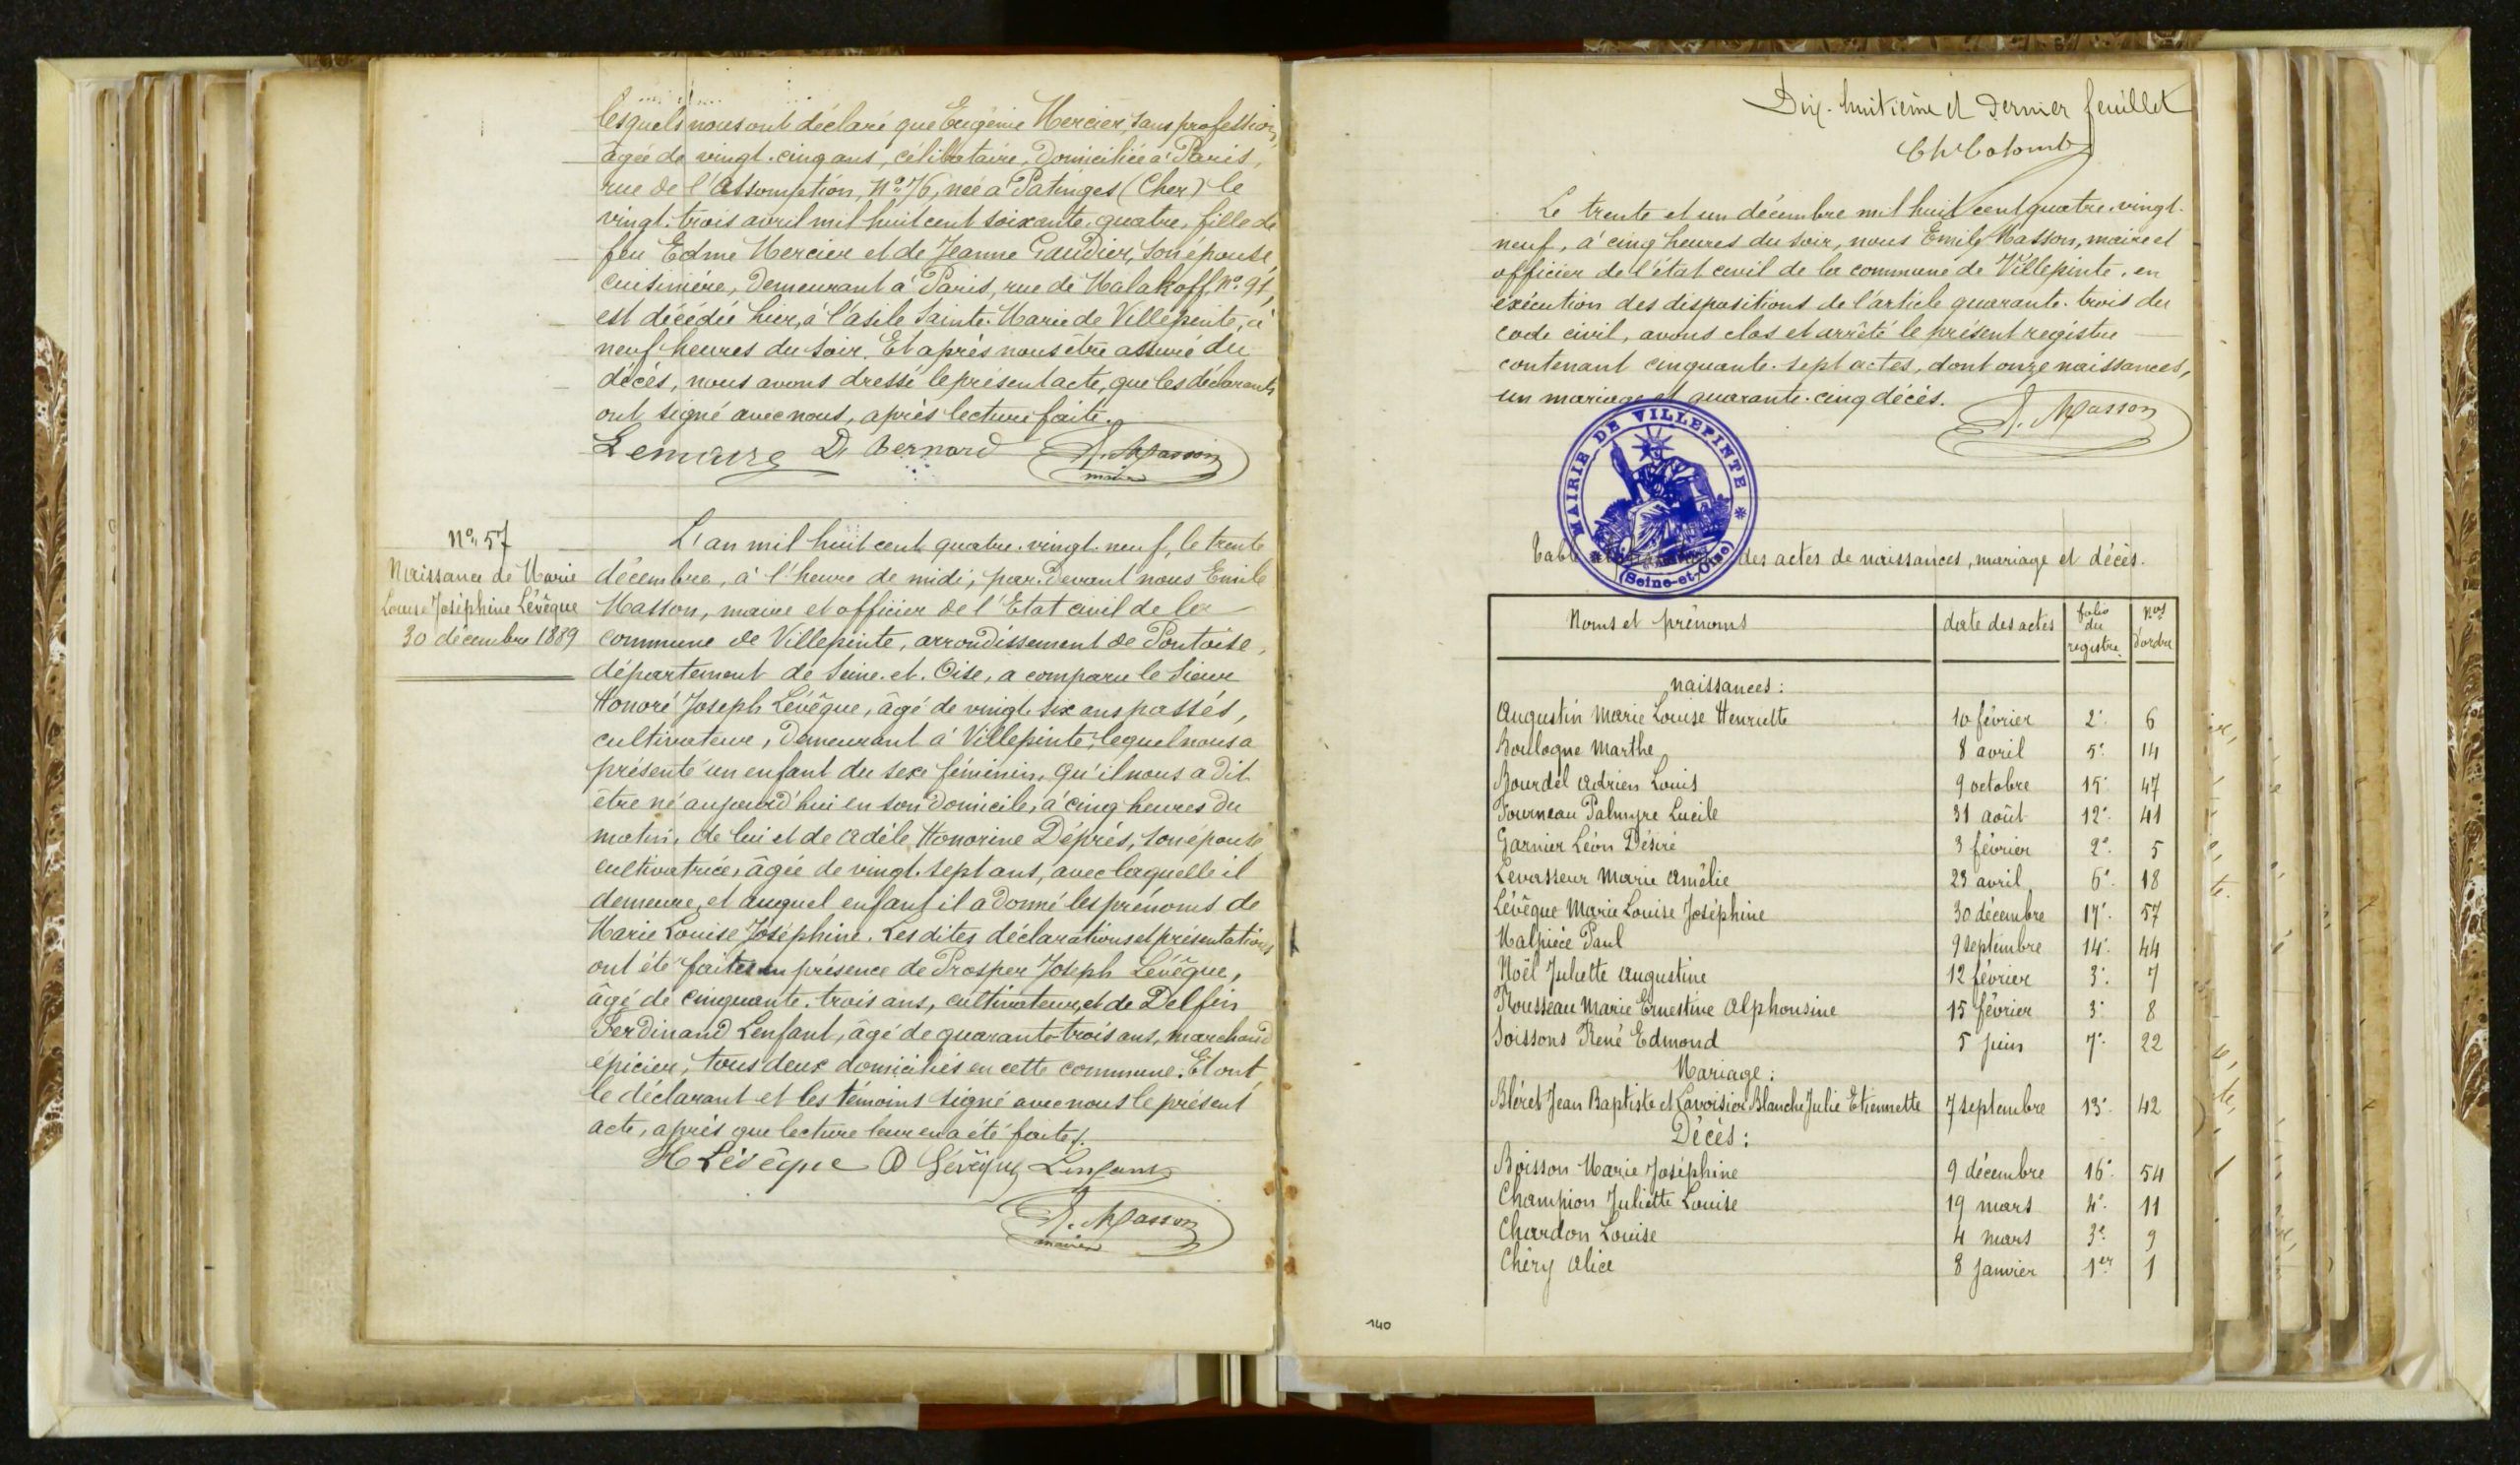 lesquels nous ont déclaré que Eugénie Mercier, sans profession,
âgée de vingt-cinq ans, célibataire, domiciliée à Paris,
rue de l'Assomption, No 76, née à Patinges (Cher) le
vingt-trois avril mil huit cent soixante-quatre, fille de
feu Edme Mercier et de Jeanne Gaudier, son épouse,
cuisinière, demeurant à Paris, rue de Malakoff, No 91,
est décédée hier, à l'asile Sainte-Marie de Villepinte, à
neuf heures du soir. Et après nous être assuré du
décès, nous avons dressé le présent acte, que les déclarants
ont signé avec nous, après lecture faite.
Lemaire D. Bernard E. Masson
maire
No 57
Naissance de Marie
Louise Joséphine Lévêque
30 décembre 1889
L'an mil huit cent quatre-vingt-neuf, le trente
décembre, à l'heure de midi, par-devant nous Emile
Masson, maire et officier de l'Etat civil de la
commune de Villepinte, arrondissement de Pontoise,
département de Seine-et-Oise, a comparu le sieur
Honoré Joseph Lévêque, âgé de vingt-six ans passés,
cultivateur, demeurant à Villepinte, lequel nous a
présenté un enfant du sexe féminin, qu'il nous a dit
être né aujourd'hui en son domicile, à cinq heures du
matin, de lui et de Adèle Honorine Déprés, son épouse
cultivatrice, âgée de vingt-sept ans, avec laquelle il
demeure, et auquel enfant il a donné les prénoms de
Marie Louise Joséphine. Les dites déclarations et présentations
ont été faites en présence de Prosper Joseph Lévêque,
âgé de cinquante-trois ans, cultivateur, et de Delfin
Ferdinand Lenfant, âgé de quarante-trois ans, marchand
épicier, tous deux domiciliés en cette commune. Et ont
le déclarant et les témoins signé avec nous le présent
acte, après que lecture leur en a été faite.
H Lévêque Lévêque Lenfant
E. Masson
maire
Dix-huitième et dernier feuillet
Ch Colomb
Le trente et un décembre mil huit cent quatre-vingt-
neuf, à cinq heures du soir, nous Emile Masson, maire et
officier de l'état civil de la commune de Villepinte, en
exécution des dispositions de l'article quarante-trois du
code civil, avons clos et arrêté le présent registre
contenant cinquante-sept actes, dont onze naissances,
un mariage et quarante-cinq décès.
E. Masson
MAIRIE DE VILLEPINTE
(Seine-et-Oise)
Table des actes de naissances, mariage et décès.
Noms et prénoms date des actes folio du registre Nos d'ordre
naissances:
Augustin Marie Louise Henriette 10 février 2e 6
Boulogne Marthe 8 avril 5e 14
Bourdel Adrien Louis 9 octobre 15e 47
Fourneau Palmyre Lucile 31 août 12e 41
Garnier Léon Désiré 3 février 2e 5
Levasseur Marie Amélie 23 avril 6e 18
Lévêque Marie Louise Joséphine 30 décembre 17e 57
Malpièce Paul 9 septembre 14e 44
Noël Juliette Augustine 12 février 3e 7
Rousseau Marie Ernestine Alphonsine 15 février 3e 8
Soissons René Edmond 5 juin 7e 22
Mariage:
Bléret Jean Baptiste et Lavoisier Blanche Julie Etiennette 7 septembre 13e 42
Décès:
Boisson Marie Joséphine 9 décembre 16e 54
Champion Juliette Louise 19 mars 4e 11
Chardon Louise 4 mars 3e 9
Chéry Alice 8 janvier 1er 1
140